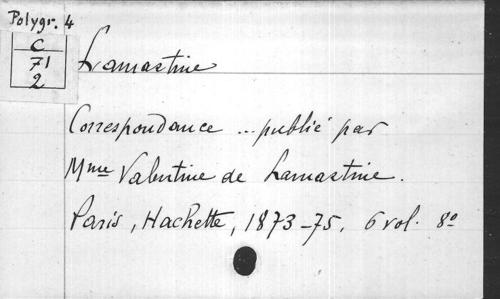 Polygr. 4
C
71
2
Lamartine
Correspondance ... publié par
Mme Valentine de Lamartine.
Paris, Hachette, 1873-75. 6 vol. 8º